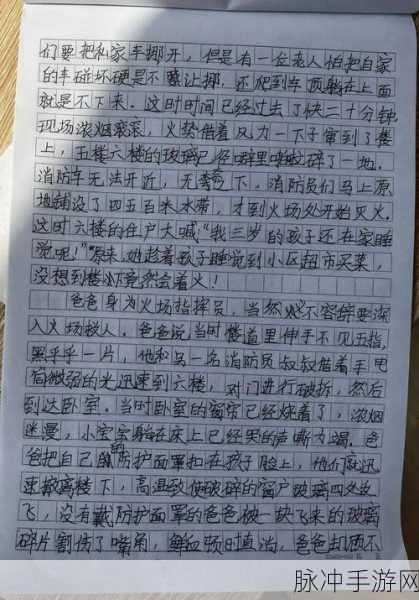 们要把私家车挪开，但是有一位老人怕把自家
的车碰坏硬是不让挪，还爬到车顶躺在上面
就是不下来。这时时间已经过去了快二十分钟
现场浓烟滚滚，火势借着风力一下子窜到了楼
上，五楼六楼的玻璃已经噼里啪啦碎了一地。
消防车无法开近，无奈下，消防员们马上原
地铺设了四五百米水带，才到火场处开始灭火。
这时六楼的住户大喊“我三岁的孩子还在家睡
觉呢！”原来她趁着孩子睡觉到小区超市买菜，
没想到楼下竟然会着火！
爸爸身为火场指挥员，当然义不容辞要深
入火场救人。爸爸说当时楼道里伸手不见五指，
黑乎乎一片，他和另一名消防员叔叔借着手电
筒微弱的光迅速到六楼，对门进行破拆，然后
到达卧室。当时卧室的窗帘已经烧着了，浓烟
迷漫，小宝宝躺在床上已经哭的声嘶力竭。爸
爸把自己的防护面罩扣在孩子脸上，他们就迅
速撤离楼下，高温致使破碎的窗户玻璃四处纷
飞，没有戴防护面罩的爸爸被一块飞来的玻璃
碎片割伤了嘴角，鲜血顿时直淌，爸爸却顾不
脉冲手游网